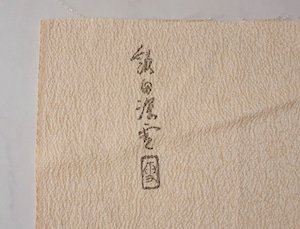 飯田深雪